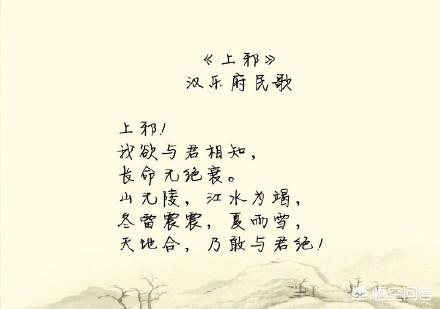 《上邪》
汉乐府民歌
上邪！
我欲与君相知，
长命无绝衰。
山无陵，江水为竭，
冬雷震震，夏雨雪，
天地合，乃敢与君绝！
悟空问答